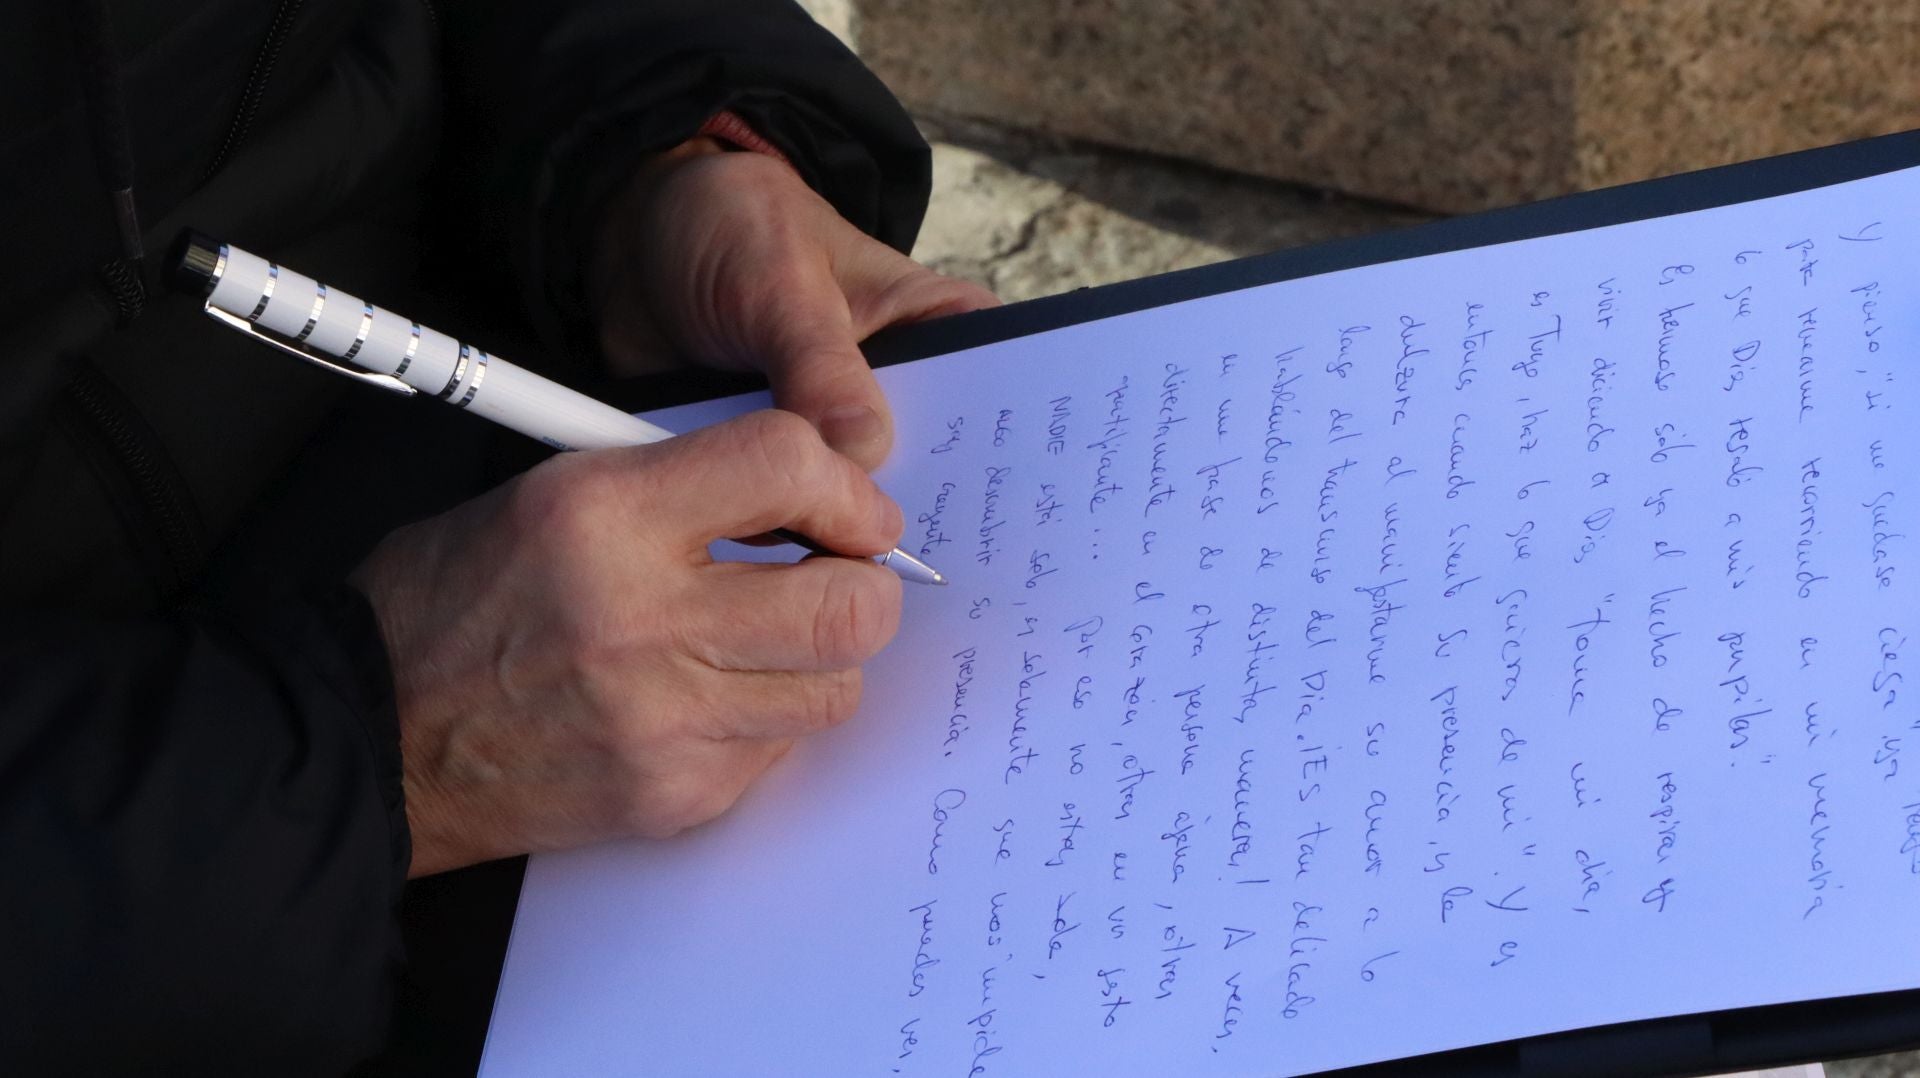 Y pienso, "si me quedase ciega, ya
para recrearme recorriendo en mi memoria
lo que Dios regaló a mis pupilas".
Es hermoso sólo ya el hecho de respirar y
vivir diciendo a Dios "toma mi día,
es Tuyo, haz lo que quieras de mi". Y es
entonces cuando siento su presencia, y le
dulzura al manifestarme su amor a lo
largo del transcurso del día. ¡Es tan delicado
hablándonos de distintas maneras! A veces,
en una frase de otra persona ajena, otras
directamente en el corazón, otras en un gesto
gratificante... Por eso no estoy sola,
NADIE está solo, es solamente que nos impide
algo descubrir su presencia. Como puedes ver,
soy creyente